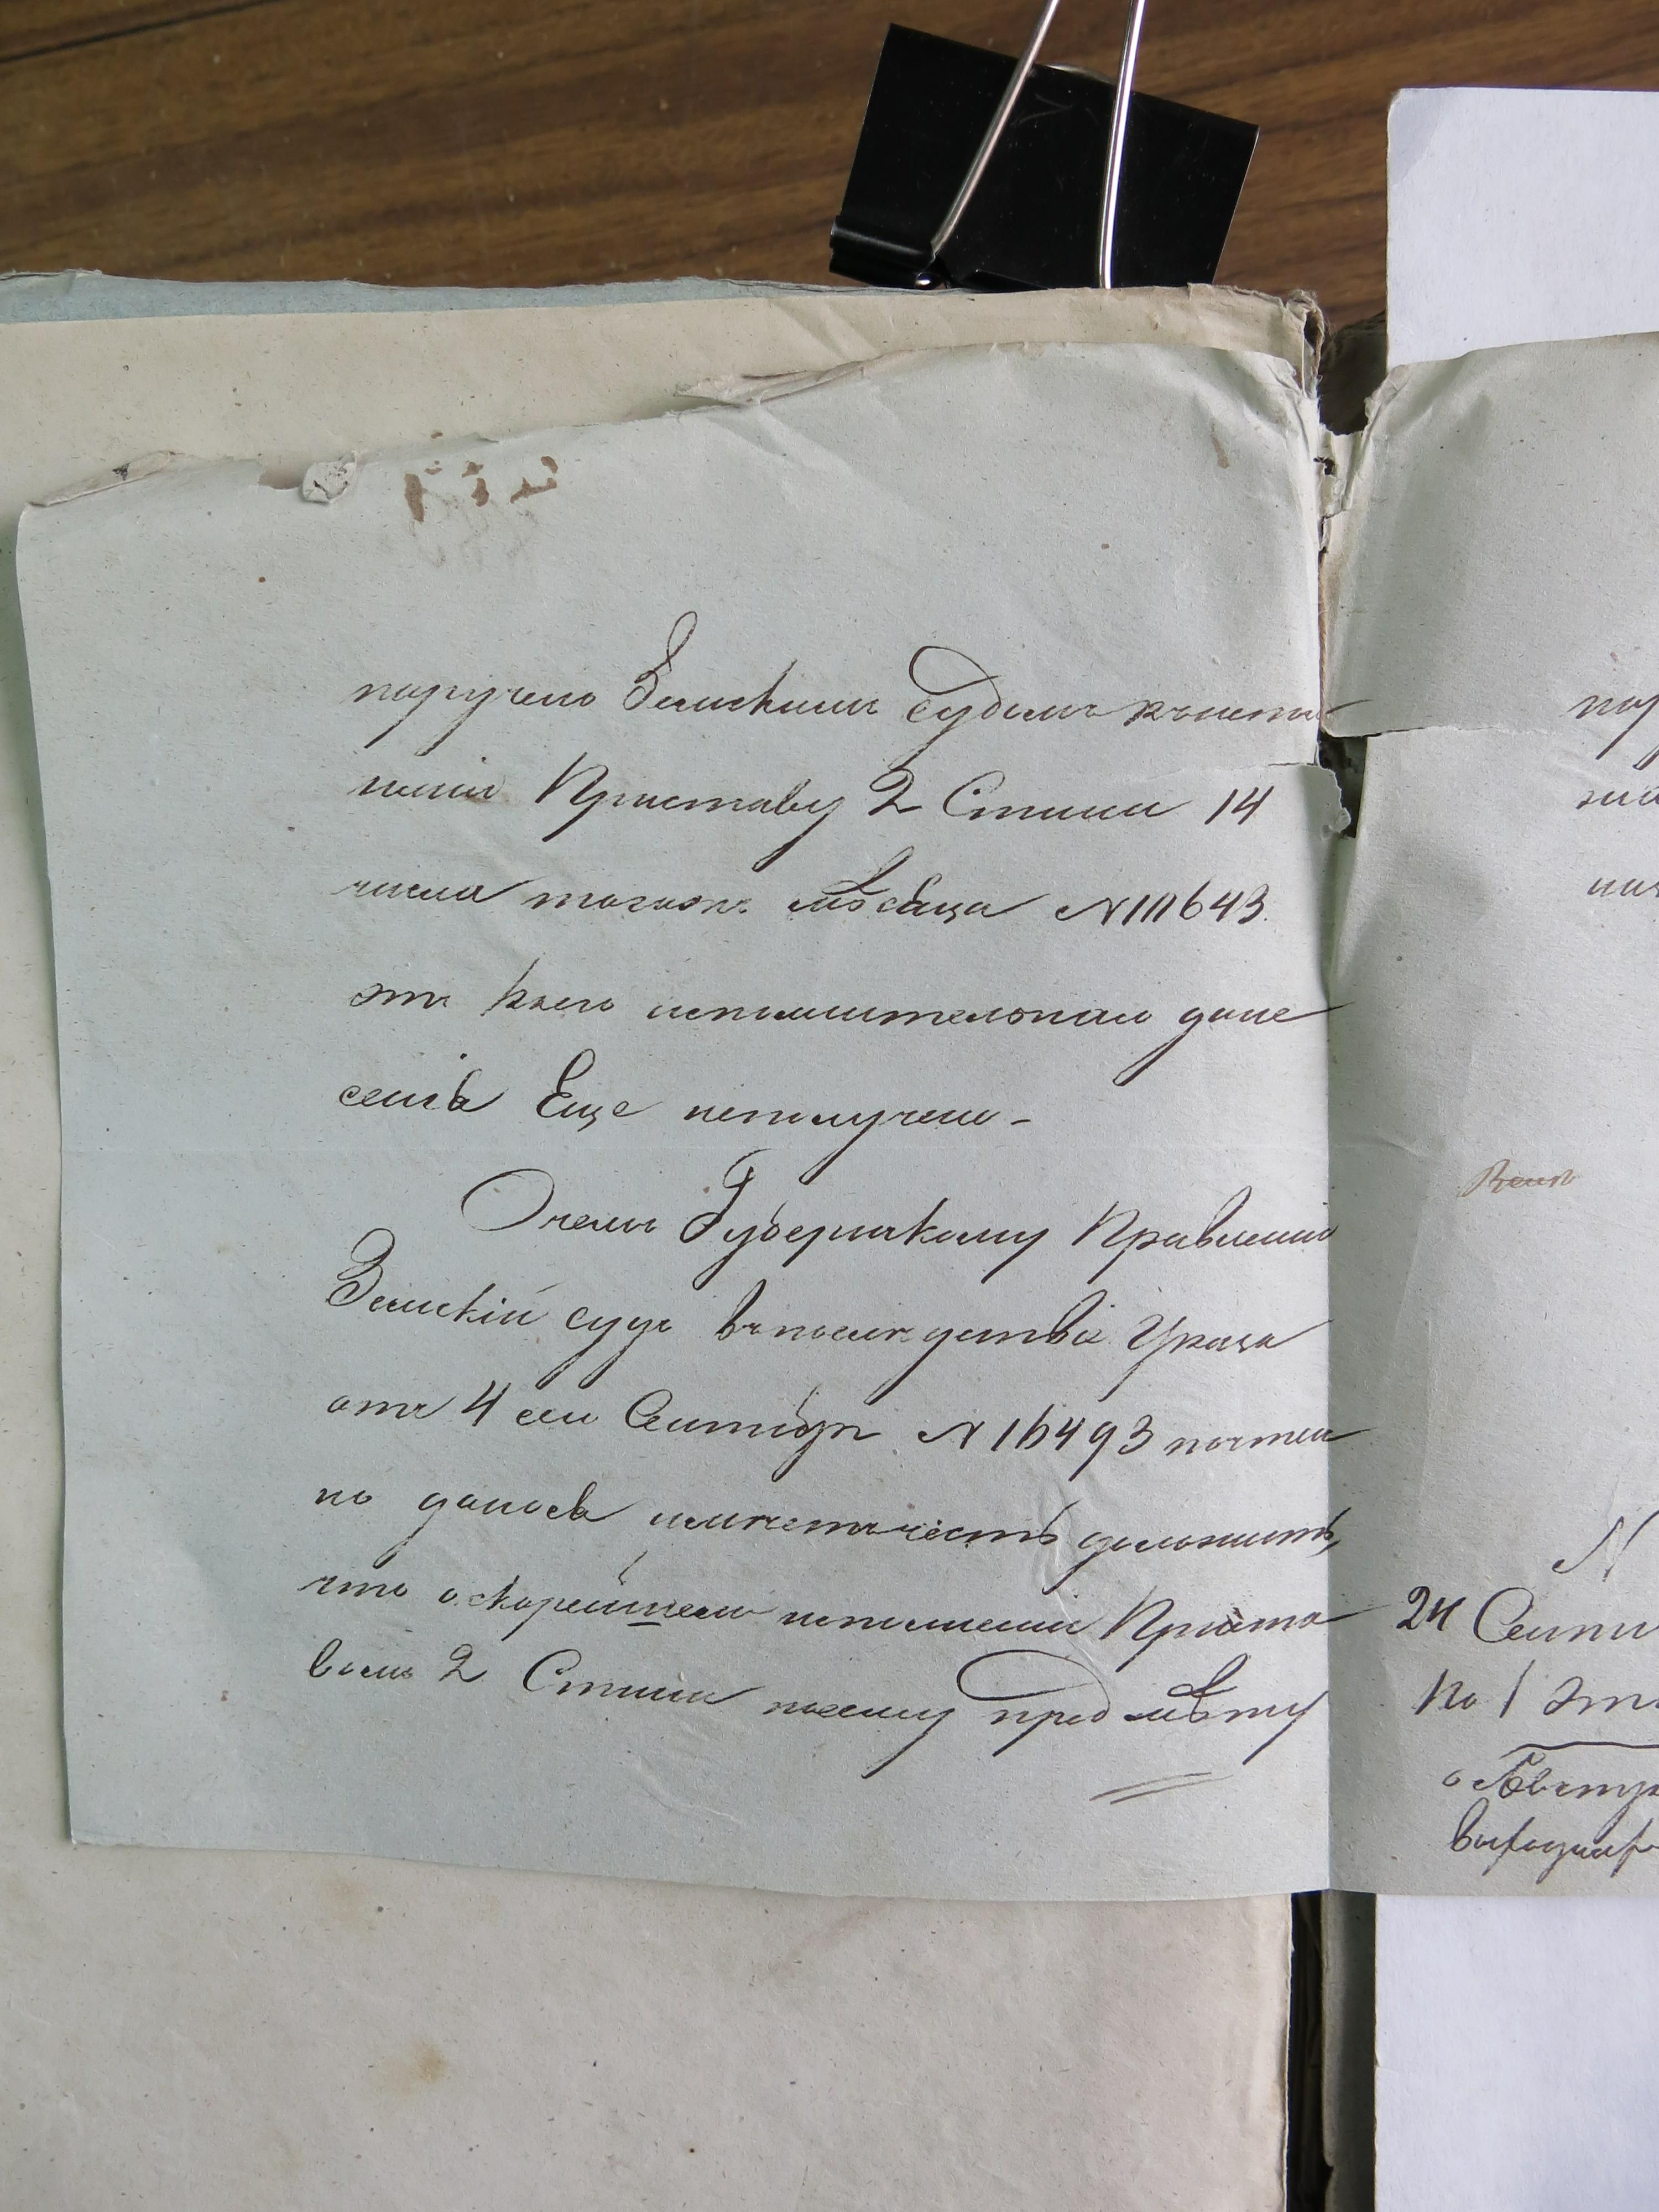 поручено Земскимъ Судомъ къиспол
ненію Приставу 2 Стана 14
числа тогоже мѣсяца №
отъ коего исполнительнаго доне
сенія Еще неполучено -
Очемъ Губернскому Правленію
Земскій судъ въпоследствіе Указа
отъ 4 сего Сентябр № 16493 почтен
но донося имѣетъ честь доложить,
что оскорейшемъ исполненіи Приста
вомъ 2 Стана посему предмѣту
24 Сентя
по 1